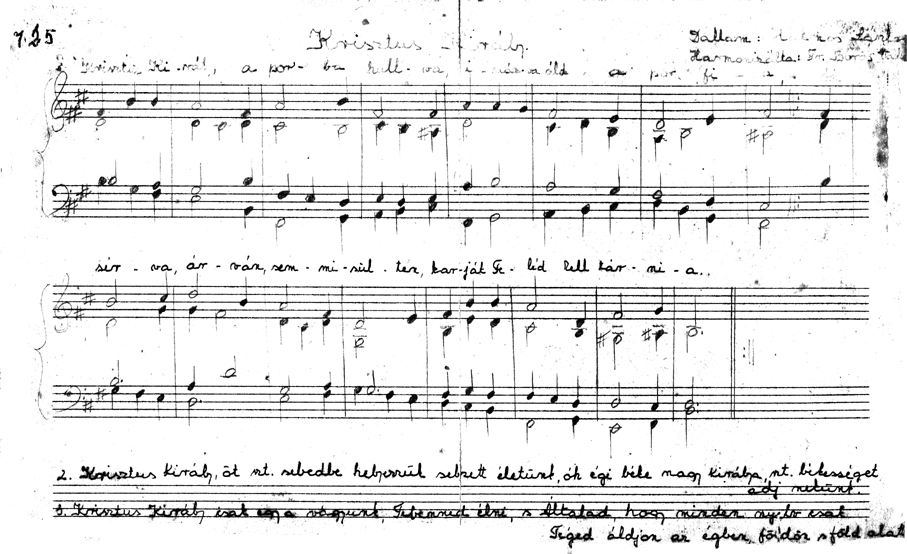 725
Krisztus Király
Dallam:
Harmonizálta: Fr.
Ki-rály, a por-ba hull-va, i-
sír-va, ár-ván, sem-mi-sül-ten, kar-ját Fe-léd kell tár-ni-a..
2. Krisztus Király, öt szt. sebedbe helyezzük sebzett életünk, óh égi béke nagy királya, szt. békességet
adj nekünk.
3. Krisztus Király csak egy a vágyunk, Tebenned élni, s Általad, hogy minden nyelv csak
Téged áldjon az égben, földön s föld alatt